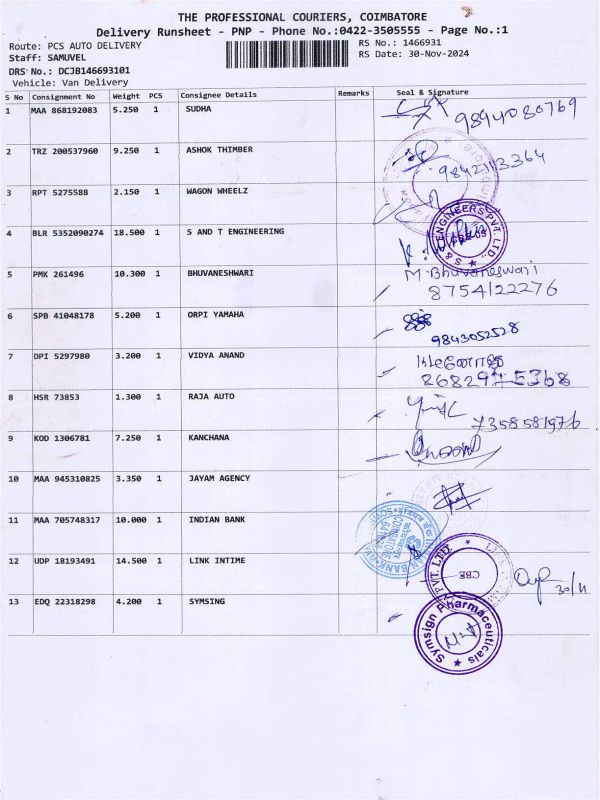 THE PROFESSIONAL COURIERS, COIMBATORE
Delivery Runsheet - PNP - Phone No.:0422-3505555 - Page No.:1
Route: PCS AUTO DELIVERY
RS No.: 1466931
Staff: SAMUVEL
RS Date: 30-Nov-2024
DRS No.: DCJB146693101
Vehicle: Van Delivery
S No Consignment No Weight PCS Consignee Details Remarks Seal & Signature
1 MAA 868192083 5.250 1 SUDHA 9894080769
2 TRZ 200537960 9.250 1 ASHOK THIMBER 9842113364
3 RPT 5275588 2.150 1 WAGON WHEELZ
4 BLR 5352090274 18.500 1 S AND T ENGINEERING
ENGINEERS PVT. LTD.
5 PMK 261496 10.300 1 BHUVANESHWARI M. Bhuvaneswari
8754122276
6 SPB 41048178 5.200 1 ORPI YAMAHA
9843052528
7 DPI 5297980 3.200 1 VIDYA ANAND
8 HSR 73853 1.300 1 RAJA AUTO
7358581976
9 KOD 1306781 7.250 1 KANCHANA
10 MAA 945310825 3.350 1 JAYAM AGENCY
11 MAA 705748317 10.000 1 INDIAN BANK
COIMBATORE
12 UDP 18193491 14.500 1 LINK INTIME
PVT. LTD. CBE 30/11
13 EDQ 22318298 4.200 1 SYMSING
Symsign Pharmaceuticals